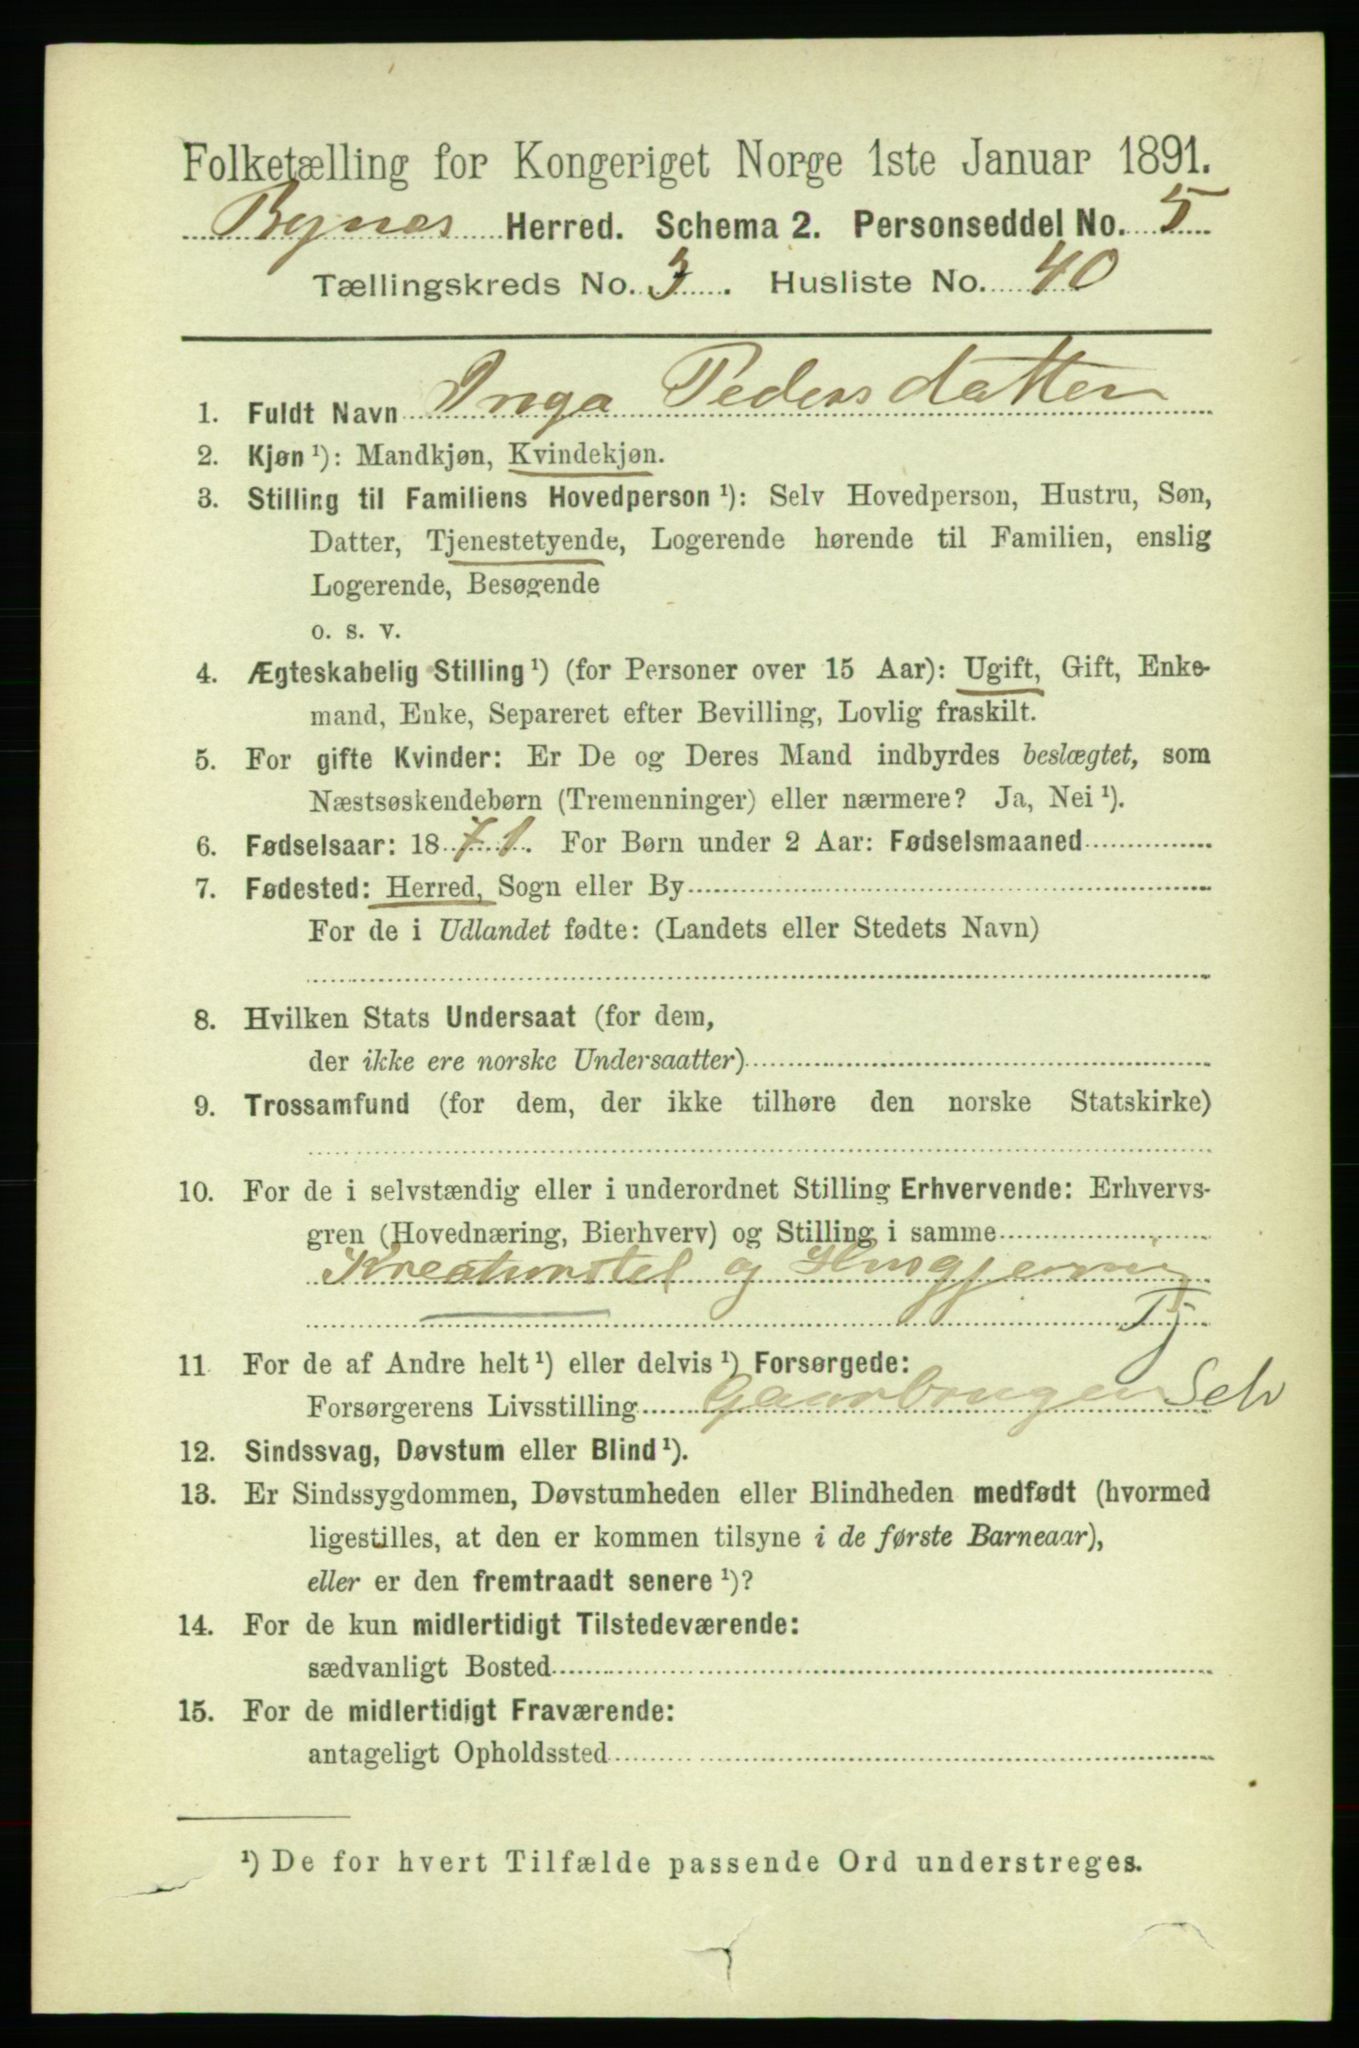 Folketælling for Kongeriget Norge 1ste Januar 1891.
Bynes Herred. Schema 2. Personseddel No. 5
Tællingskreds No. 3. Husliste No. 40
1. Fuldt Navn Inga Pedersdatter
2. Kjøn ¹): Mandkjøn, Kvindekjøn.
3. Stilling til Familiens Hovedperson ¹): Selv Hovedperson, Hustru, Søn,
Datter, Tjenestetyende, Logerende hørende til Familien, enslig
Logerende, Besøgende
o. s. v.
4. Ægteskabelig Stilling ¹) (for Personer over 15 Aar): Ugift, Gift, Enke-
mand, Enke, Separeret efter Bevilling, Lovlig fraskilt.
5. For gifte Kvinder: Er De og Deres Mand indbyrdes beslægtet, som
Næstsøskendebørn (Tremenninger) eller nærmere? Ja, Nei ¹).
6. Fødselsaar: 1871. For Børn under 2 Aar: Fødselsmaaned
7. Fødested: Herred, Sogn eller By
For de i Udlandet fødte: (Landets eller Stedets Navn)
8. Hvilken Stats Undersaat (for dem,
der ikke ere norske Undersaatter)
9. Trossamfund (for dem, der ikke tilhøre den norske Statskirke)
10. For de i selvstændig eller i underordnet Stilling Erhvervende: Erhvervs-
gren (Hovednæring, Bierhverv) og Stilling i samme
Kreaturstel og Husgjerning
Tj
11 For de af Andre helt ¹) eller delvis ¹) Forsørgede:
Forsørgerens Livsstilling Gaardbruger Selv
12. Sindssvag, Døvstum eller Blind ¹).
13. Er Sindssygdommen, Døvstumheden eller Blindheden medfødt (hvormed
ligestilles, at den er kommen tilsyne i de første Barneaar),
eller er den fremtraadt senere ¹)?
14. For de kun midlertidigt Tilstedeværende:
sædvanligt Bosted
15. For de midlertidigt Fraværende:
antageligt Opholdssted
¹) De for hvert Tilfælde passende Ord understreges.